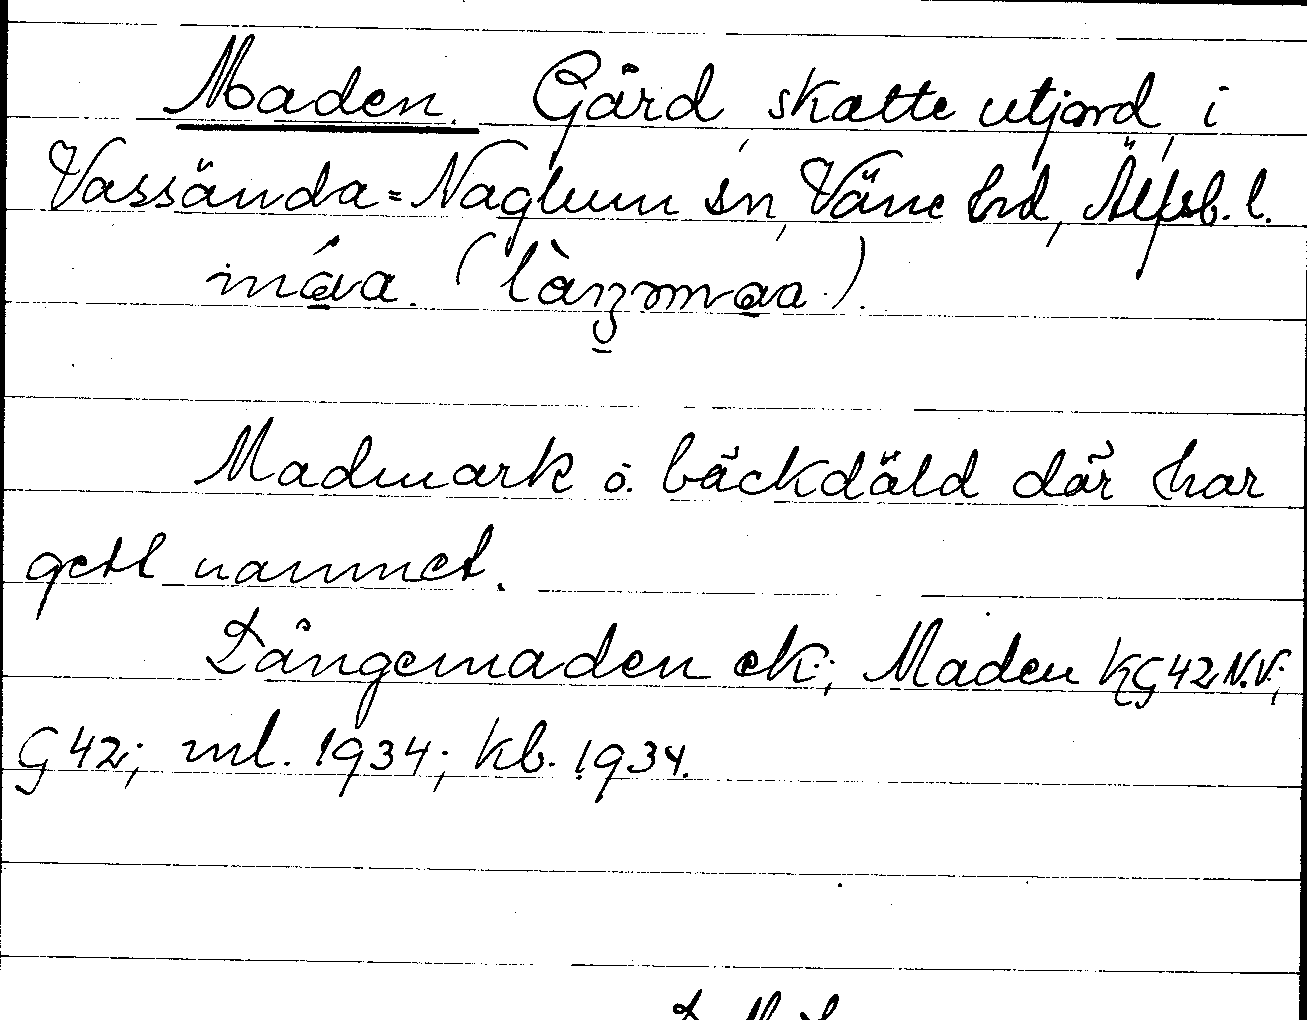 Maden. Gård, skatte utjord, i
Vassända-Naglum sn, Väne hd, Älfsb. l.
Madmark o. bäckdäld där har
gett namnet.
Långemaden ek.; Maden KG42 N.V.;
G42; ml. 1934; kb. 1934.